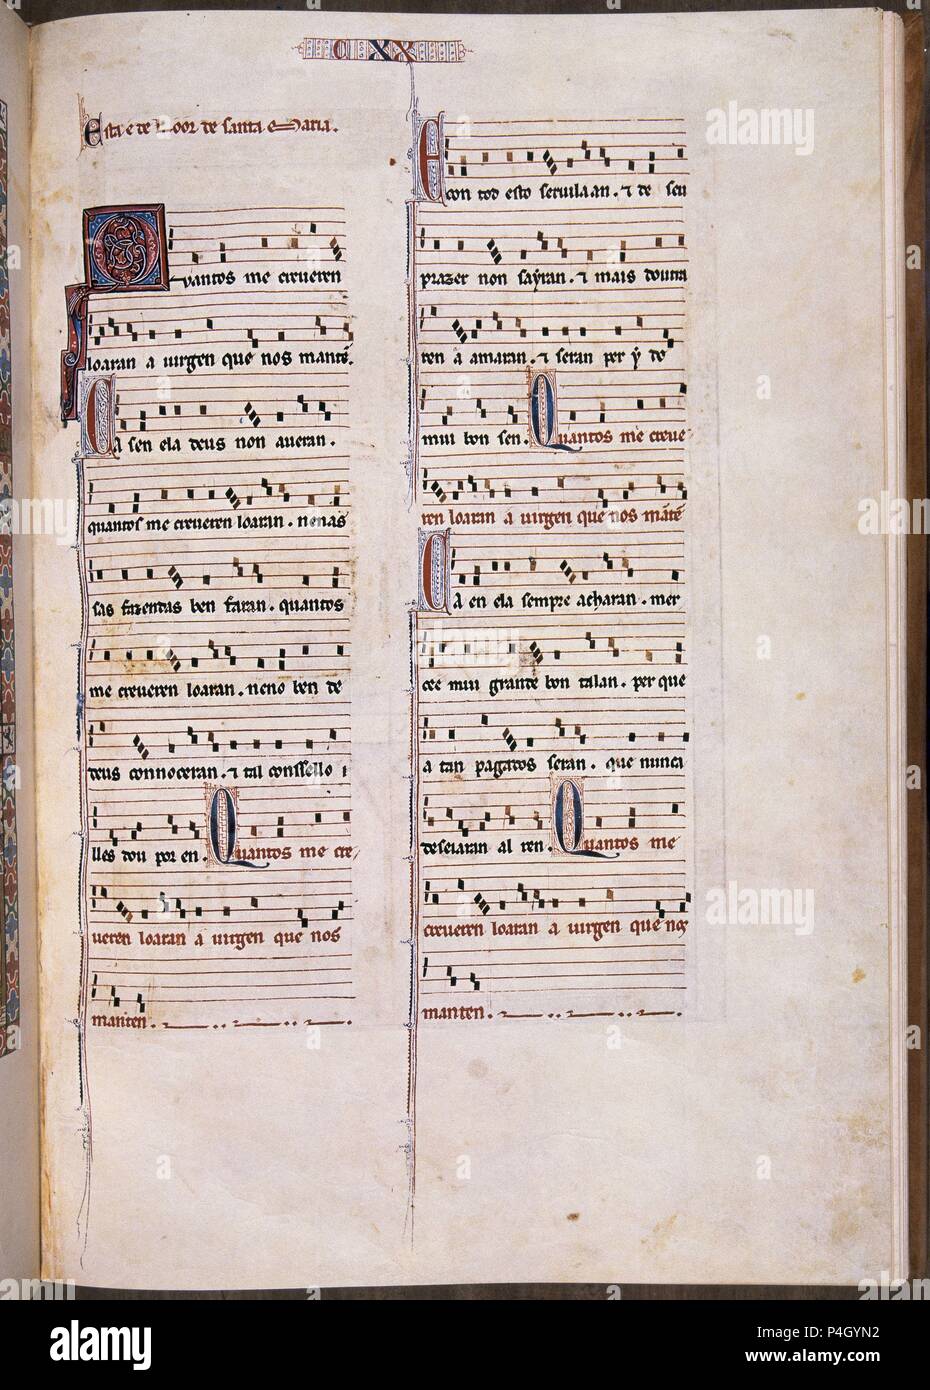 CXX
Esta e de Loor de santa Maria.
Quantos me creueren
loaran a uirgen que nos manten.
Ca sen ela deus non aueran.
quantos me creueren loaran. nenas
sas fazendas ben faran. quantos
me creueren loaran. neno ben de
deus connoceran. τ tal conssello i
lles dou por en. Quantos me cre
ueren loaran a uirgen que nos
manten.
E con tod esto seruilaan. τ de seu
prazer non sayran. τ mais doutra
ren a amaran. τ seran per y de
mui bon sen. Quantos me creue
ren loaran a uirgen que nos mãtẽ
Ca en ela sempre acharan. mer
cee mui grande bon talan. per que
a tan pagados seran. que nunca
deseiaran al ren. Quantos me
creueren loaran a uirgen que nos
manten.
alamy
alamy
P4GYN2
www.alamy.com